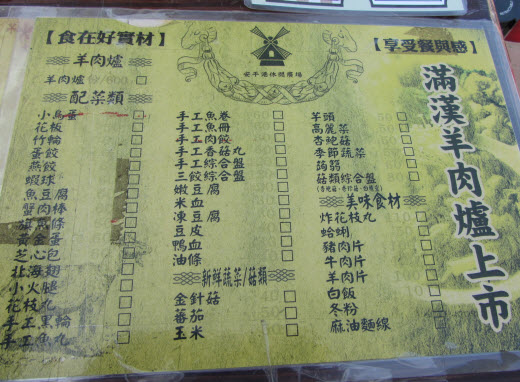 【食在好實材】
羊肉爐
羊肉爐
配菜類
小鳥蛋
花板
竹輪
蛋餃
燕餃
蝦球
魚豆腐
蟹肉棒
旗魚條
黃金蛋
芝心包
小火腿
花枝丸
手工黑輪
手工魚丸
安平港休閒廣場
手工魚卷
手工魚冊
手工肉餃
手工香菇丸
手工綜合盤
三餃綜合盤
嫩豆腐
米血
凍豆腐
豆皮
鴨血
油條
新鮮蔬菜/菇類
金針菇
蕃茄
玉米
芋頭
高麗菜
杏鮑菇
季節蔬菜
蒟蒻
菇類綜合盤
美味食材
炸花枝丸
蛤蜊
豬肉片
牛肉片
羊肉片
白飯
冬粉
麻油麵線
【享受餐與感】
滿漢羊肉爐上市